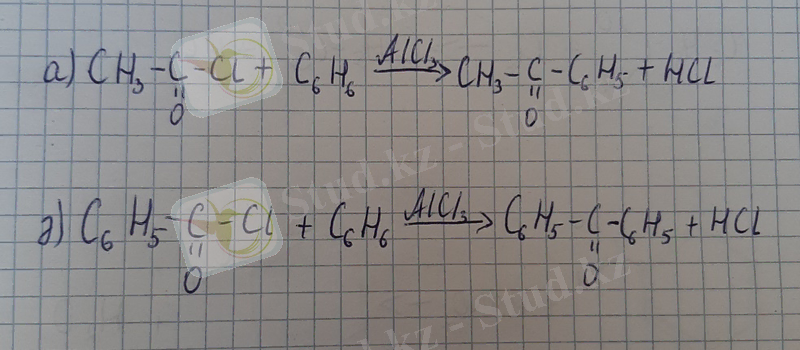 а) CH₃-C-Cl + C₆H₆ AlCl₃→ CH₃-C-C₆H₅ + HCl
O O
ә) C₆H₅-C-Cl + C₆H₆ AlCl₃→ C₆H₅-C-C₆H₅ + HCl
O O
Stud.kz - Stud.kz
Stud.kz - Stud.kz
Stud.kz